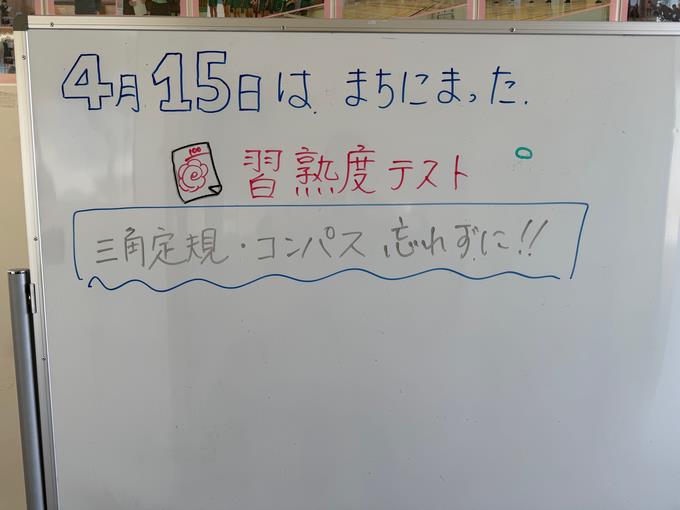 4月15日は、まちにまった、
100
習熟度テスト
三角定規・コンパス 忘れずに!!